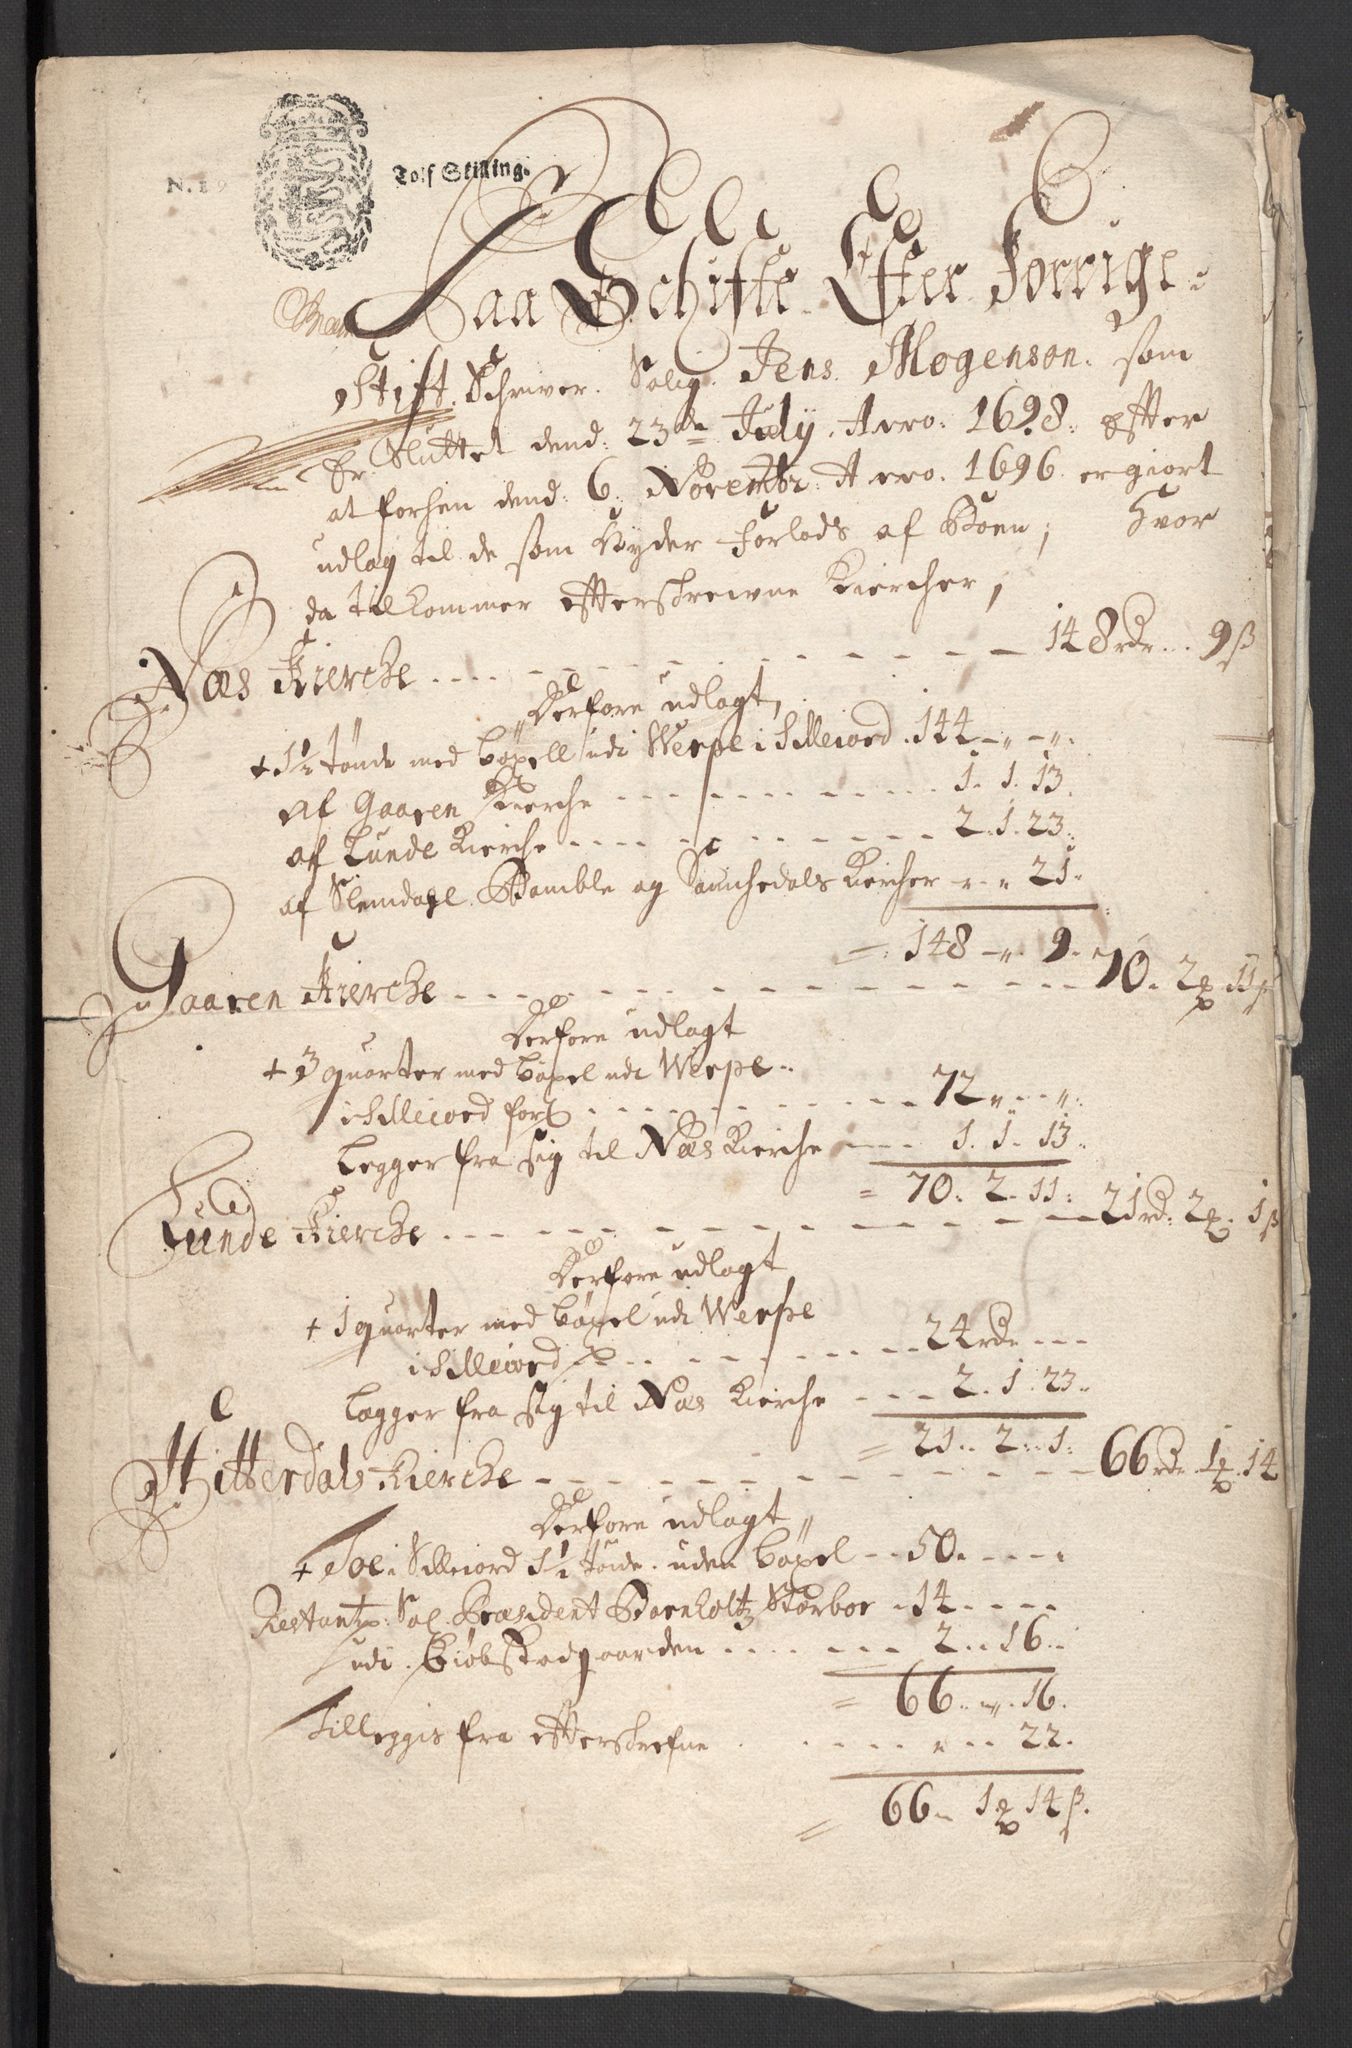 N. 19
Tolf Skilling.
Paa Schifte Efter Forrige
Stift Schriver Salig Jens Mogenson som
er Sluttet dend: 23de July Anno: 1698: efter
at forhen dend: 6. Novembr: Anno. 1696 er giort
udlag til de som byder forlods af Boen; Hvor
da tilkommer efterschrevne Kiercher,
Næs Kierche - - - 148 rdr. 9 ß
Derfore udlagt,
+ 1½ tønde med bøxell udi Werpe i Silleiord . 144 - " - ".
af Gaaren Kierche - - - 1. 1. 13.
af Lunde Kierche - - - 2. 1. 23.
af Slemdahl Bamble og Sannhedals Kircher " . " 21.
= 148 - " . 9.
Gaaren Kierche - - - 70. 2 . 11 ß
Derfore udlagt
+ 3 quarter med bøxel udi Werpe
i Silleiord for - - - 72 " - - ".
legger fra sig til Næs Kierche - - 1. 1. 13.
= 70. 2. 11.
Lunde Kierche - - - 21 rd. 2 . 1 ß
Derfore udlagt
+ 1 quarter med bøxel udi Werpe
i Silleiord - - - 24 rdr - - -
legger fra sig til Næs Kierche - - - 2. 1. 23.
= 21. 2. 1.
Hitterdals Kierche - - - 66 rdr. 1 . 14
Derfore udlagt
+ Toe i Silleiord 1½ tønde uden bøxel - - 50. - - -
Restantz Sal. Præsident Bornholtz Størboe - 14 - - -
udi Kiøbstadgaarden - - - 2. . 16.
= 66. " . 16.
Tilleggis fra efterschrefne - - - " . . 22.
= 66. 1 14 ß.